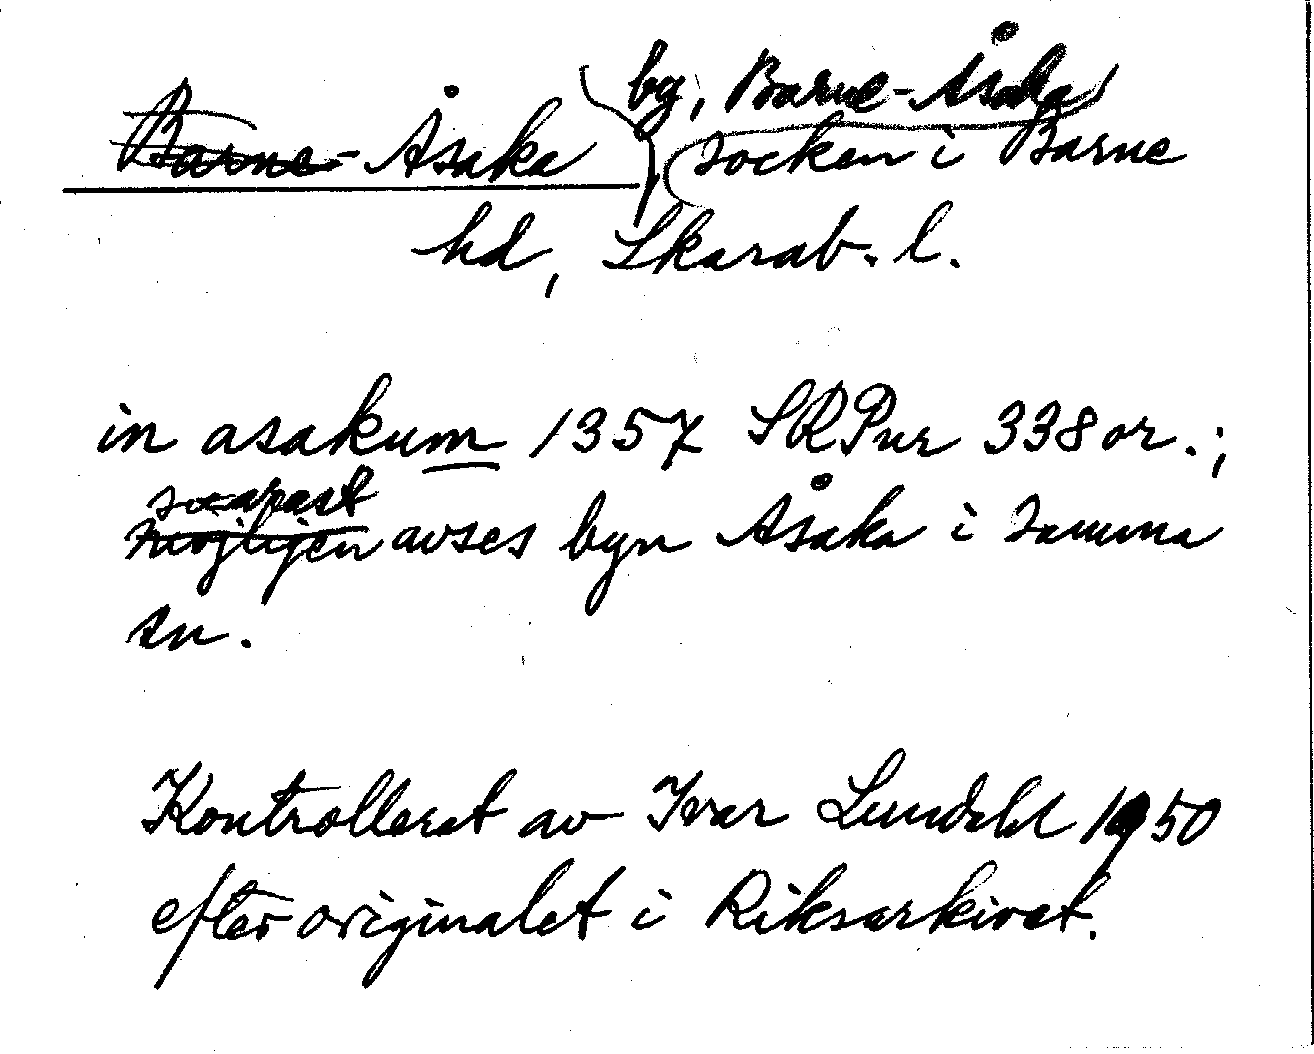 by, Barne-Åsaka
Barne-Åsaka, socken i Barne
hd, Skarab. l.
in asakum 1357 SRPnr 338 or.;
snarast
möjligen avses byn Åsaka i samma
sn.
Kontrollerat av Ivar Lundahl 1950
efter originalet i Riksarkivet.